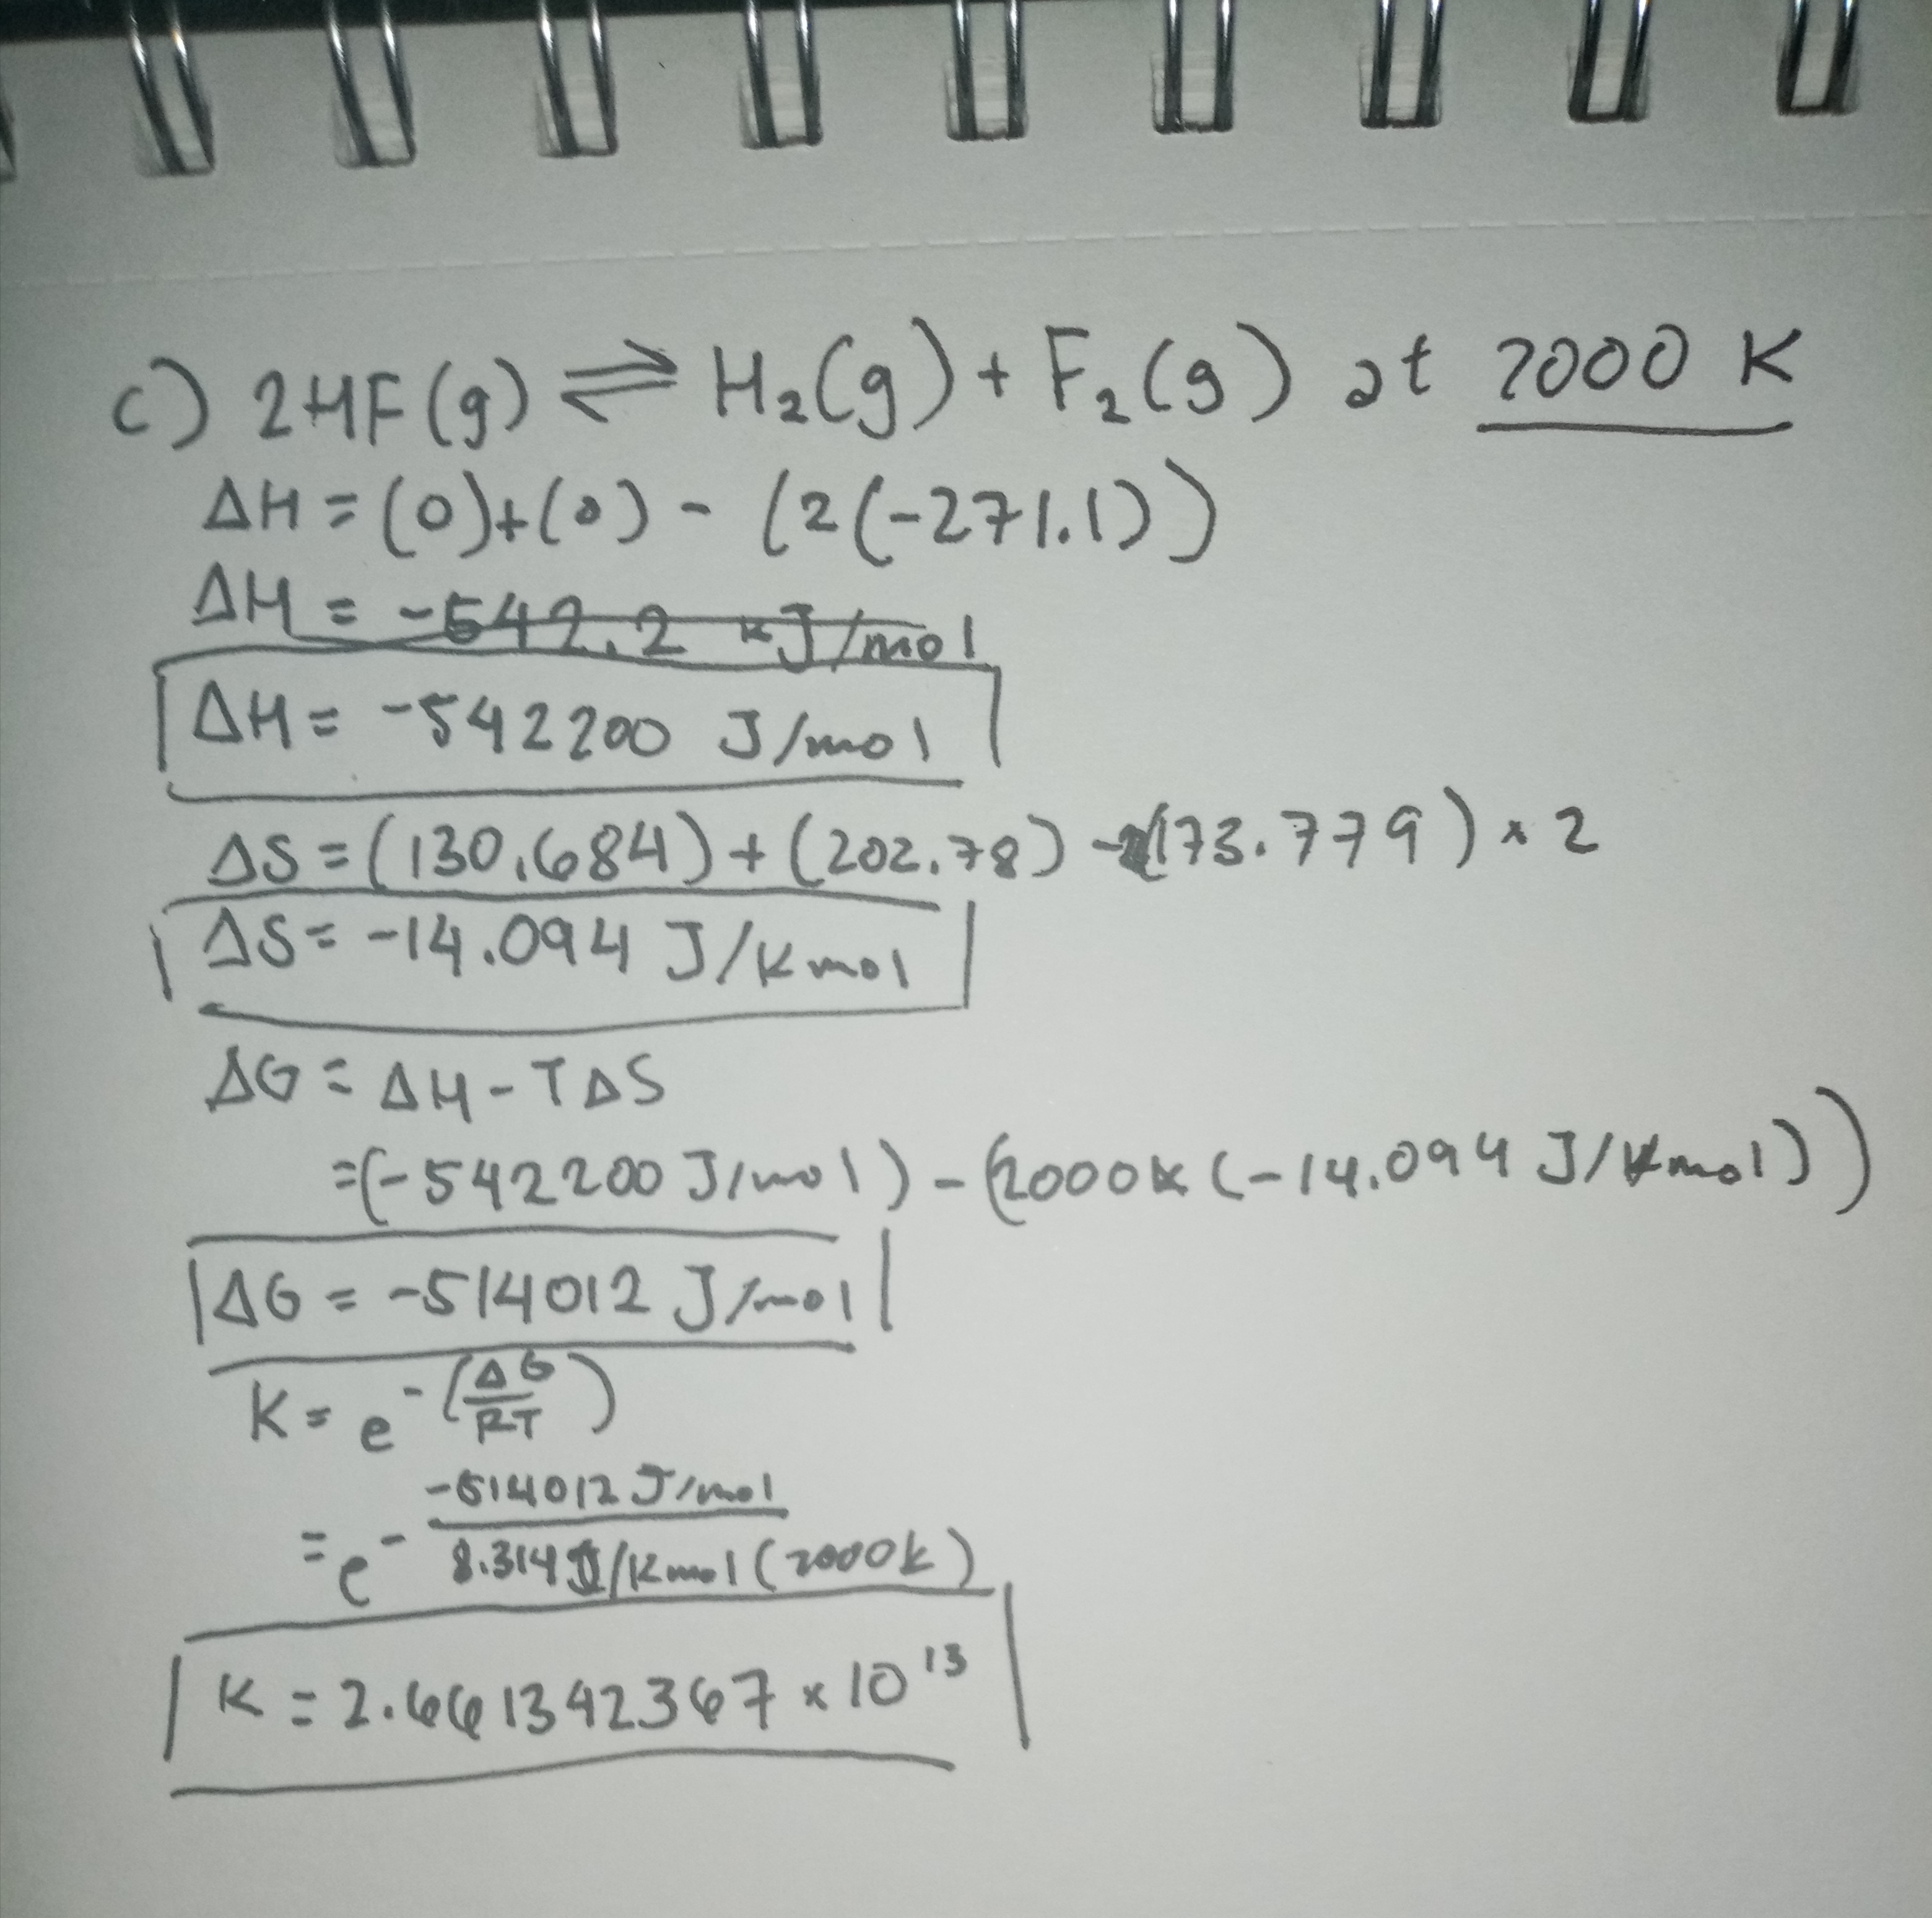 c) 2HF(g) ⇌ H₂(g) + F₂(g) at 2000 K
ΔH = (0)+(0) - (2(-271.1))
ΔH = -542.2 kJ/mol
ΔH = -542200 J/mol
ΔS = (130.684) + (202.78) - (173.779) × 2
ΔS = -14.094 J/Kmol
ΔG = ΔH - TΔS
=(-542200 J/mol) - (2000K (-14.094 J/Kmol))
ΔG = -514012 J/mol
K = e^-(ΔG/RT)
= e^- -514012 J/mol / 8.314 J/Kmol (2000K)
K = 2.661342367 × 10¹³